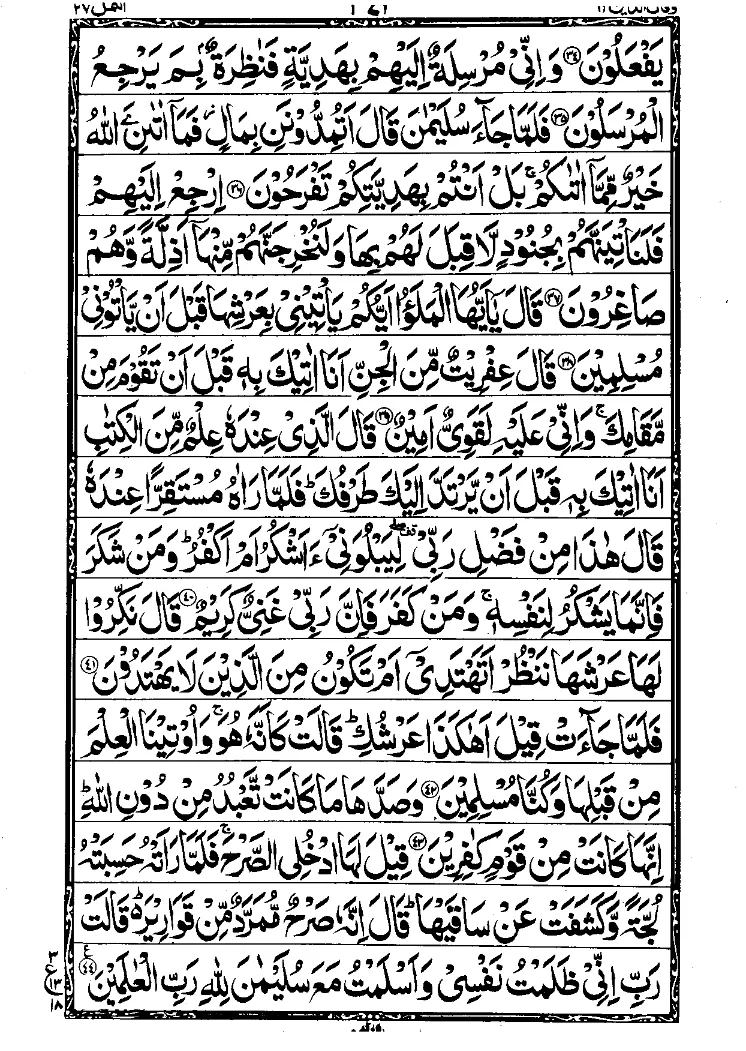 وقال الذين ١٩ ٤٦١ النمل ٢٧
يَفْعَلُوْنَ ﴿٣٤﴾ وَاِنِّیْ مُرْسِلَةٌ اِلَیْهِمْ بِهَدِیَّةٍ فَنٰظِرَةٌۢ بِمَ یَرْجِعُ
الْمُرْسَلُوْنَ ﴿٣٥﴾ فَلَمَّا جَآءَ سُلَیْمٰنَ قَالَ اَتُمِدُّوْنَنِ بِمَالٍ ؗ فَمَاۤ اٰتٰىنَِۧ اللّٰهُ
خَیْرٌ مِّمَّاۤ اٰتٰىكُمْ ۚ بَلْ اَنْتُمْ بِهَدِیَّتِكُمْ تَفْرَحُوْنَ ﴿٣٦﴾ اِرْجِعْ اِلَیْهِمْ
فَلَنَاْتِیَنَّهُمْ بِجُنُوْدٍ لَّا قِبَلَ لَهُمْ بِهَا وَلَنُخْرِجَنَّهُمْ مِّنْهَاۤ اَذِلَّةً وَّهُمْ
صَاغِرُوْنَ ﴿٣٧﴾ قَالَ یٰۤاَیُّهَا الْمَلَؤُا اَیُّكُمْ یَاْتِیْنِیْ بِعَرْشِهَا قَبْلَ اَنْ یَّاْتُوْنِیْ
مُسْلِمِیْنَ ﴿٣٨﴾ قَالَ عِفْرِیْتٌ مِّنَ الْجِنِّ اَنَا اٰتِیْكَ بِهٖ قَبْلَ اَنْ تَقُوْمَ مِنْ
مَّقَامِكَ ۚ وَاِنِّیْ عَلَیْهِ لَقَوِیٌّ اَمِیْنٌ ﴿٣٩﴾ قَالَ الَّذِیْ عِنْدَهٗ عِلْمٌ مِّنَ الْكِتٰبِ
اَنَا اٰتِیْكَ بِهٖ قَبْلَ اَنْ یَّرْتَدَّ اِلَیْكَ طَرْفُكَ ؕ فَلَمَّا رَاٰهُ مُسْتَقِرًّا عِنْدَهٗ
قَالَ هٰذَا مِنْ فَضْلِ رَبِّیْ لِیَبْلُوَنِیْۤ ءَاَشْكُرُ اَمْ اَكْفُرُ ؕ وَمَنْ شَكَرَ
فَاِنَّمَا یَشْكُرُ لِنَفْسِهٖ ۚ وَمَنْ كَفَرَ فَاِنَّ رَبِّیْ غَنِیٌّ كَرِیْمٌ ﴿٤٠﴾ قَالَ نَكِّرُوْا
لَهَا عَرْشَهَا نَنْظُرْ اَتَهْتَدِیْۤ اَمْ تَكُوْنُ مِنَ الَّذِیْنَ لَا یَهْتَدُوْنَ ﴿٤١﴾
فَلَمَّا جَآءَتْ قِیْلَ اَهٰكَذَا عَرْشُكِ ؕ قَالَتْ كَاَنَّهٗ هُوَ ۚ وَاُوْتِیْنَا الْعِلْمَ
مِنْ قَبْلِهَا وَكُنَّا مُسْلِمِیْنَ ﴿٤٢﴾ وَصَدَّهَا مَا كَانَتْ تَّعْبُدُ مِنْ دُوْنِ اللّٰهِ ؕ
اِنَّهَا كَانَتْ مِنْ قَوْمٍ كٰفِرِیْنَ ﴿٤٣﴾ قِیْلَ لَهَا ادْخُلِی الصَّرْحَ ۚ فَلَمَّا رَاَتْهُ حَسِبَتْهُ
لُجَّةً وَّكَشَفَتْ عَنْ سَاقَیْهَا ؕ قَالَ اِنَّهٗ صَرْحٌ مُّمَرَّدٌ مِّنْ قَوَارِیْرَ ؕ قَالَتْ
رَبِّ اِنِّیْ ظَلَمْتُ نَفْسِیْ وَاَسْلَمْتُ مَعَ سُلَیْمٰنَ لِلّٰهِ رَبِّ الْعٰلَمِیْنَ ﴿٤٤﴾
٣
ع
١٣
١٨